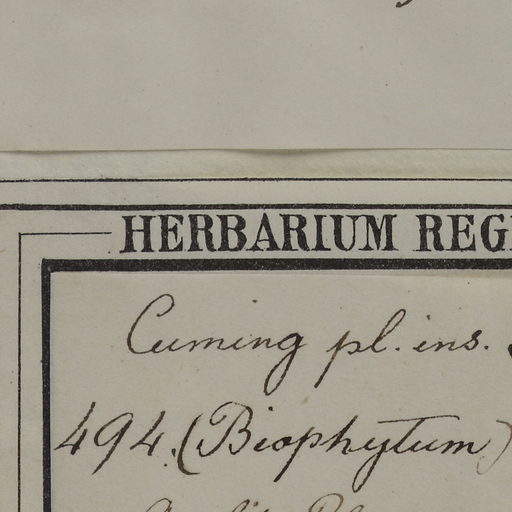 HERBARIUM REG
Cuming pl. ins.
494. (Biophytum)